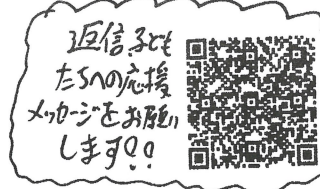 返信、子ども
たちへの応援
メッセージをお願い
します!!